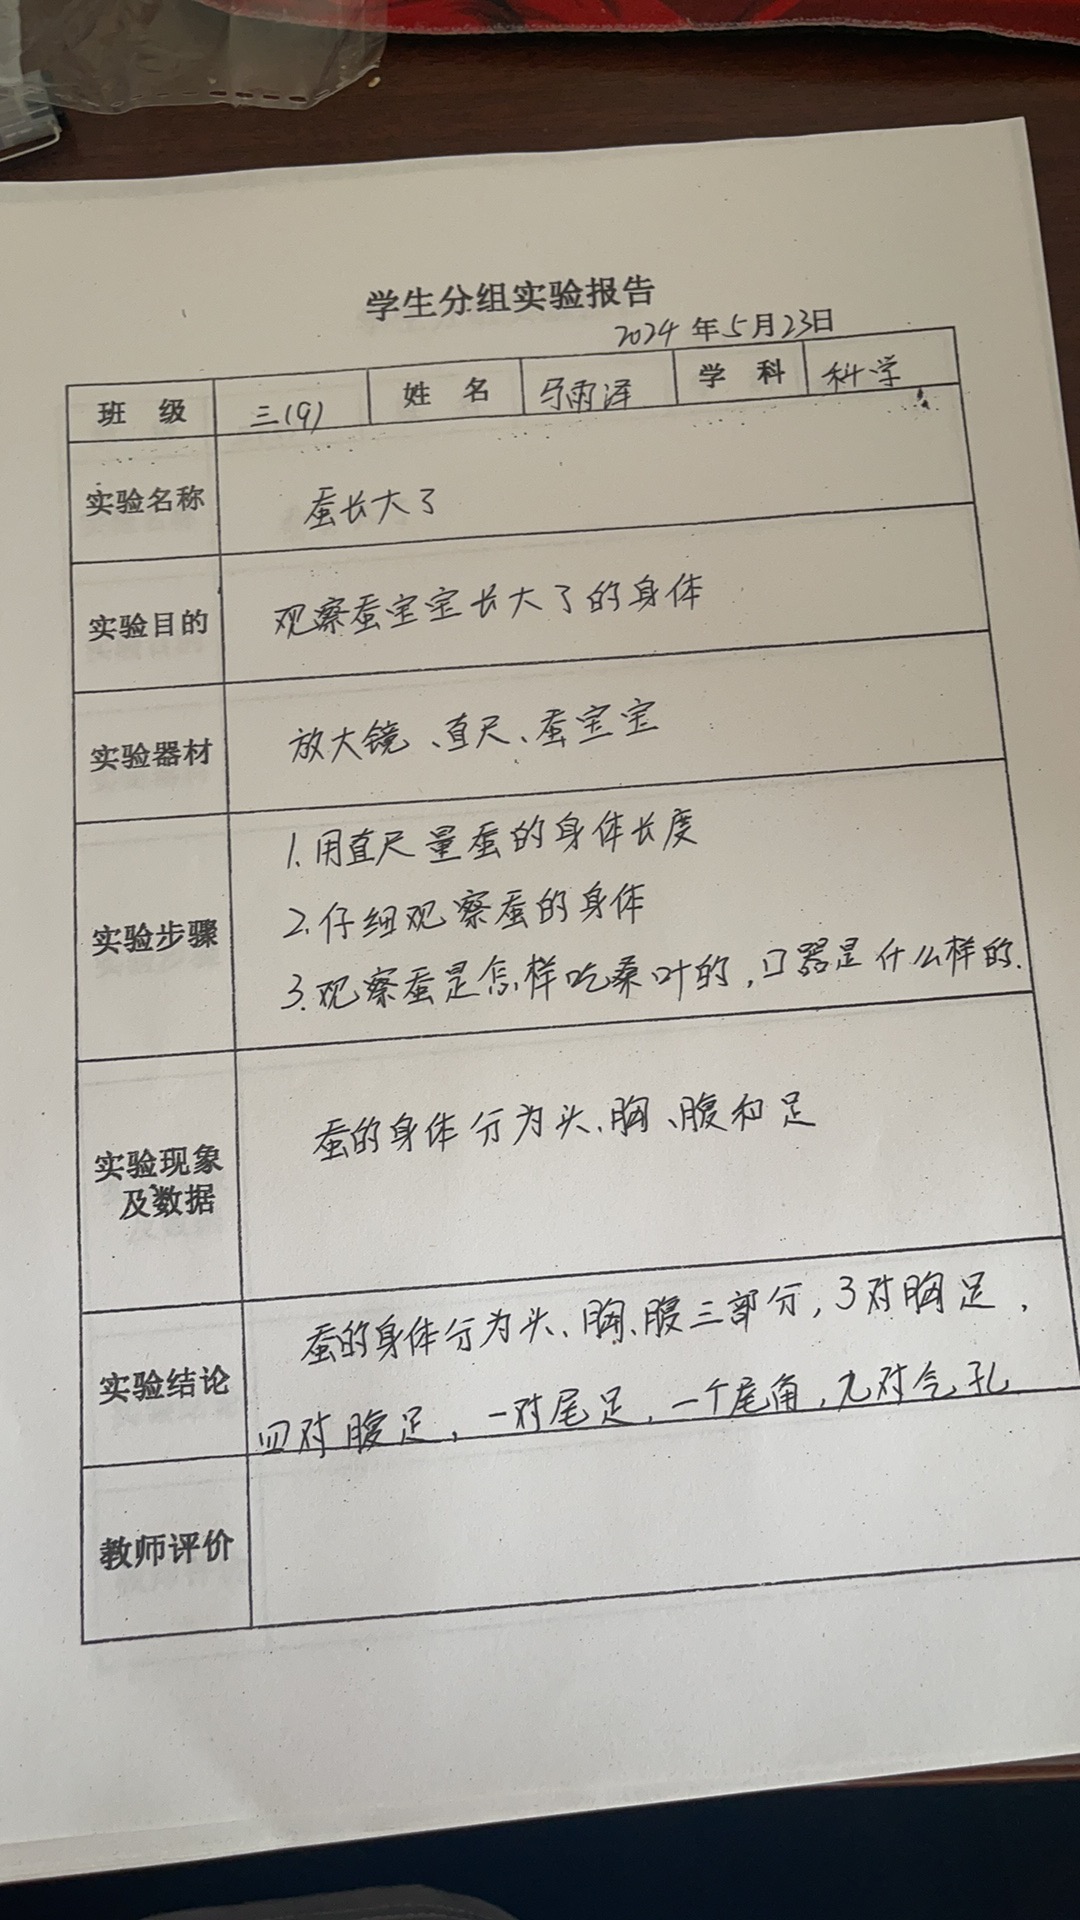 学生分组实验报告
2024年5月23日
班 级 三(9) 姓 名 马雨泽 学 科 科学
实验名称 蚕长大了
实验目的 观察蚕宝宝长大了的身体
实验器材 放大镜、直尺、蚕宝宝
1.用直尺量蚕的身体长度
实验步骤 2.仔细观察蚕的身体
3.观察蚕是怎样吃桑叶的,口器是什么样的.
蚕的身体分为头、胸、腹和足
实验现象
及数据
蚕的身体分为头、胸、腹三部分,3对胸足,
实验结论
四对腹足,一对尾足,一个尾角,九对气孔
教师评价